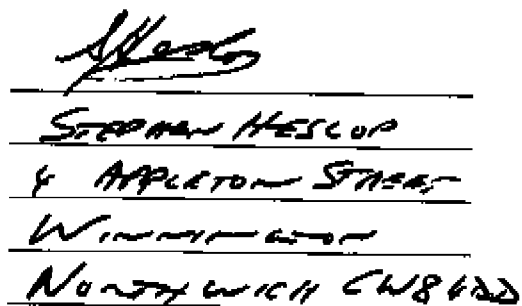 SHeslop
STEPHEN HESLOP
4 APPLETON STREET
WINNINGTON
NORTHWICH CW8 4DD